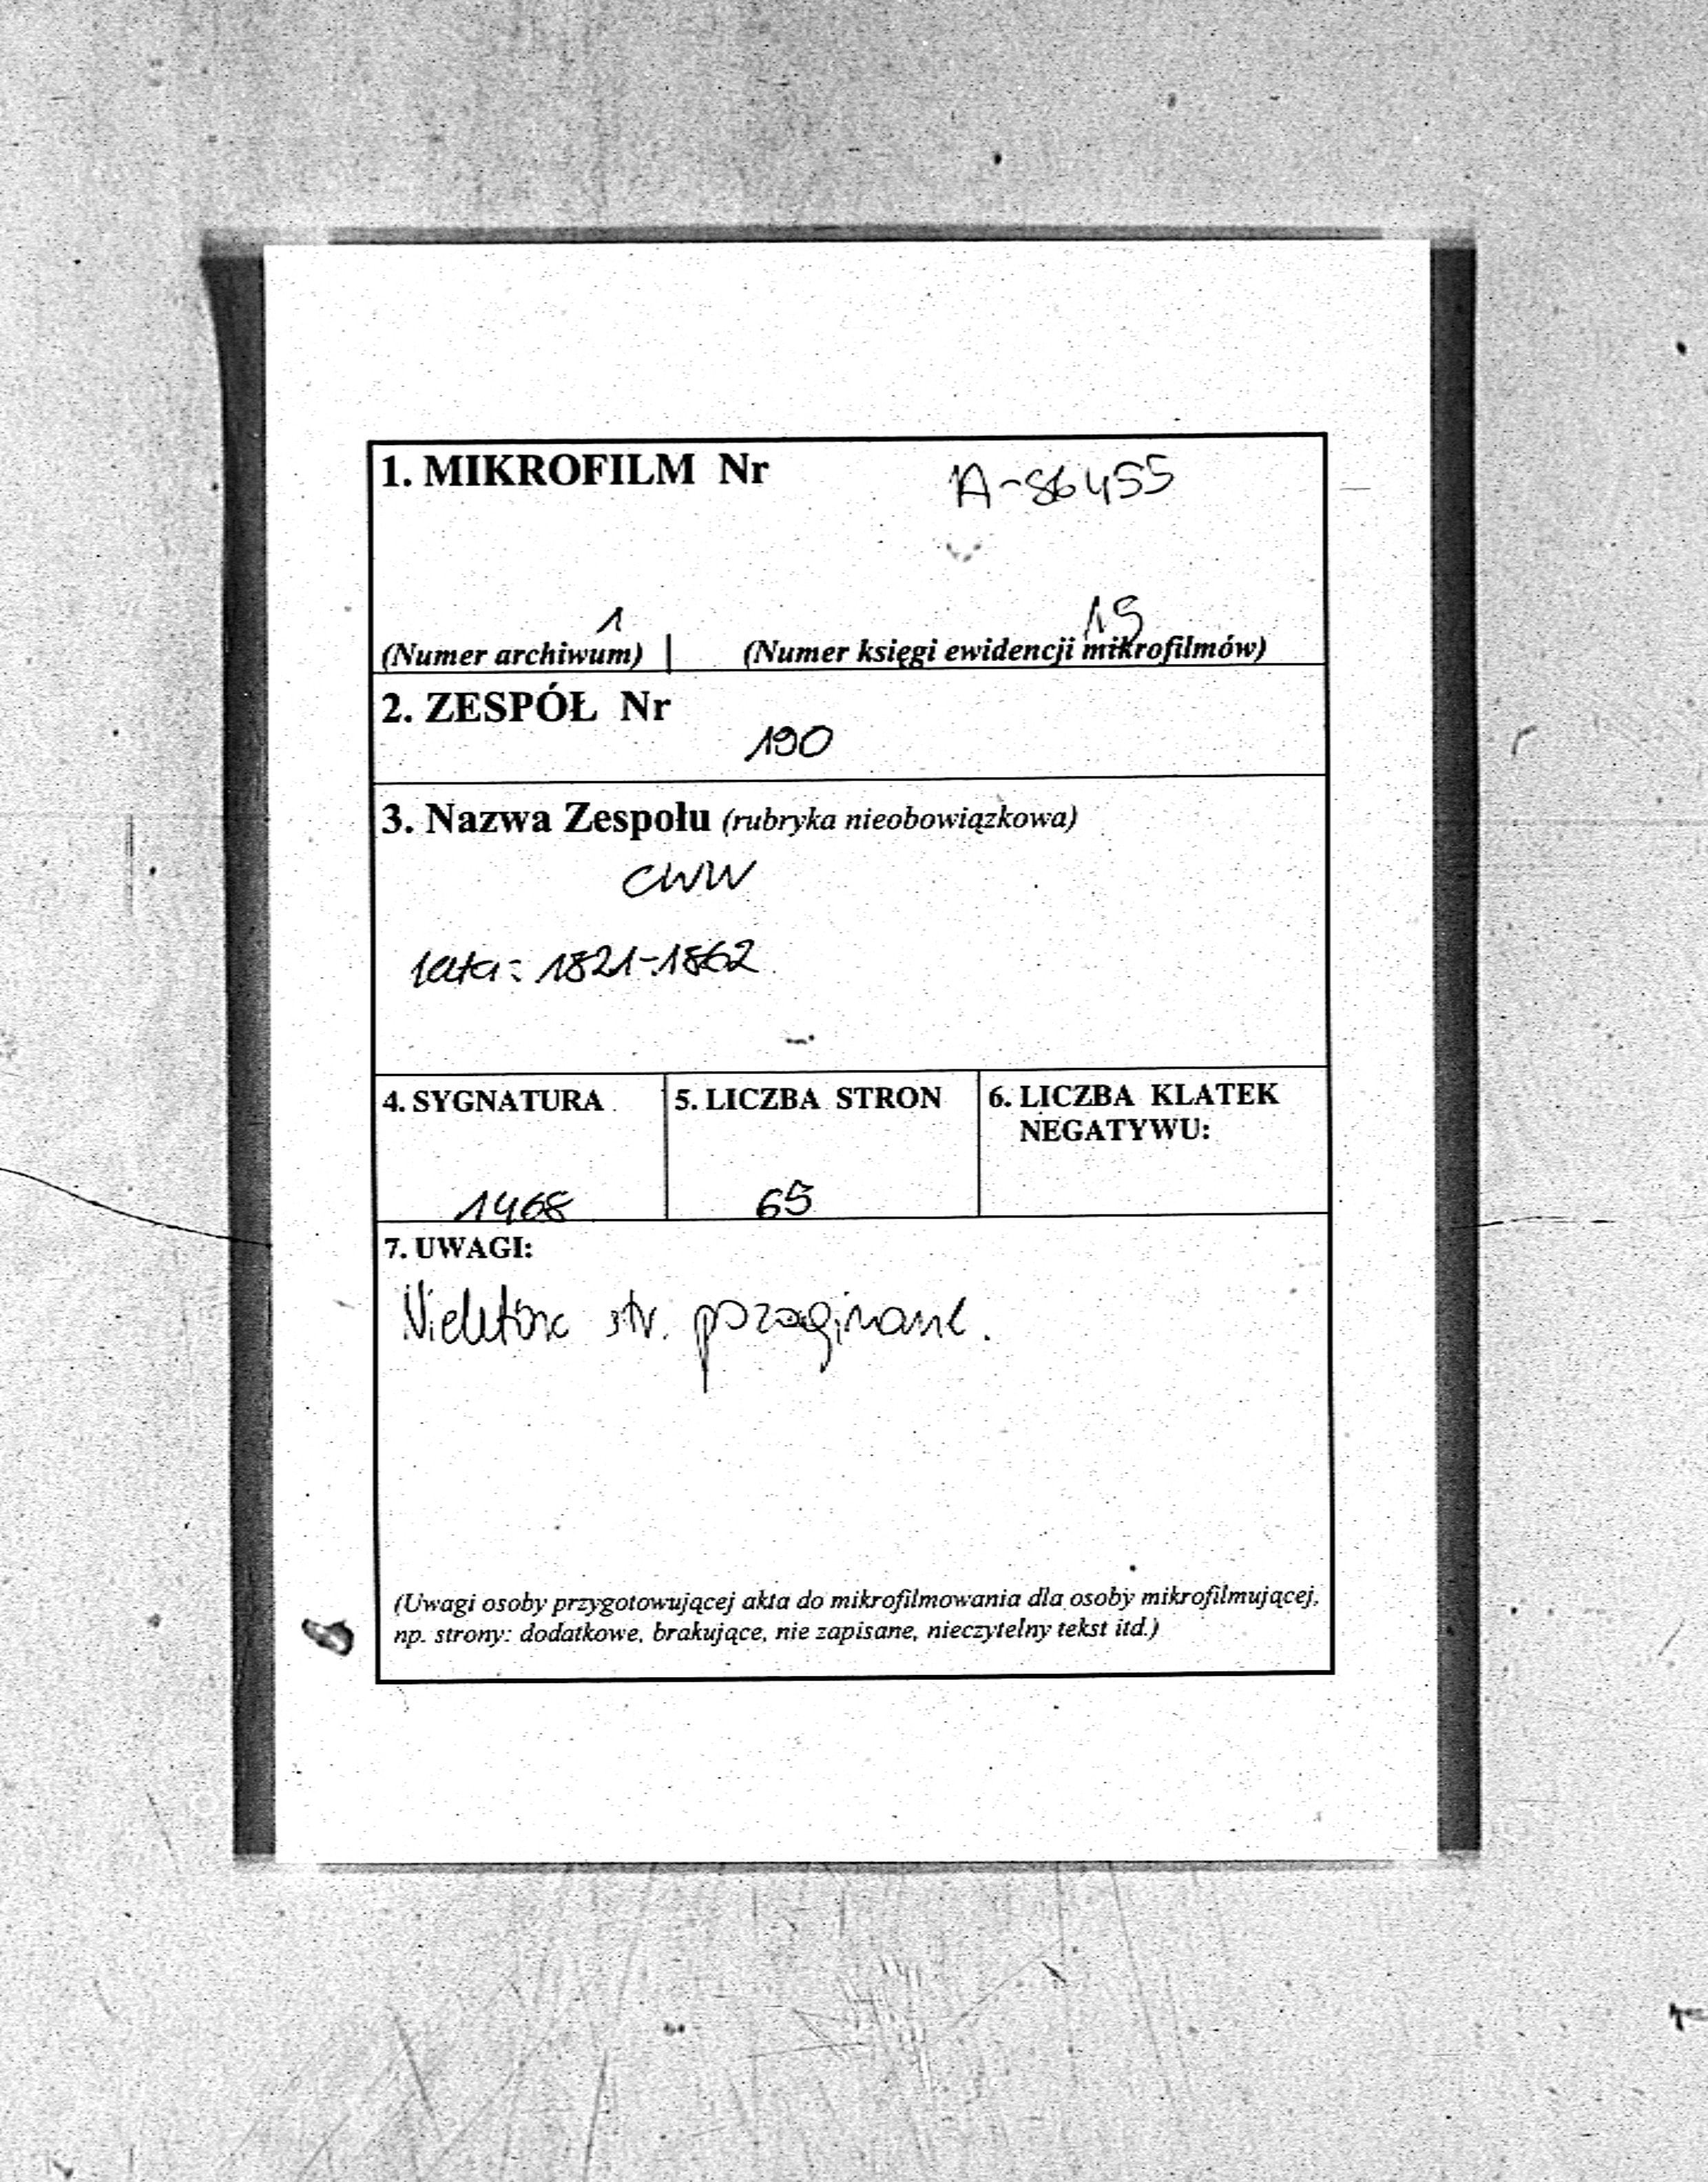 1. MIKROFILM Nr A-86455
1 15
(Numer archiwum) | (Numer księgi ewidencji mikrofilmów)
2. ZESPÓŁ Nr
190
3. Nazwa Zespołu (rubryka nieobowiązkowa)
CWW
lata: 1821-1862
4. SYGNATURA 5. LICZBA STRON 6. LICZBA KLATEK
NEGATYWU:
1468 65
7. UWAGI:
Niektóre str. pozaginane.
(Uwagi osoby przygotowującej akta do mikrofilmowania dla osoby mikrofilmującej,
np. strony: dodatkowe, brakujące, nie zapisane, nieczytelny tekst itd.)